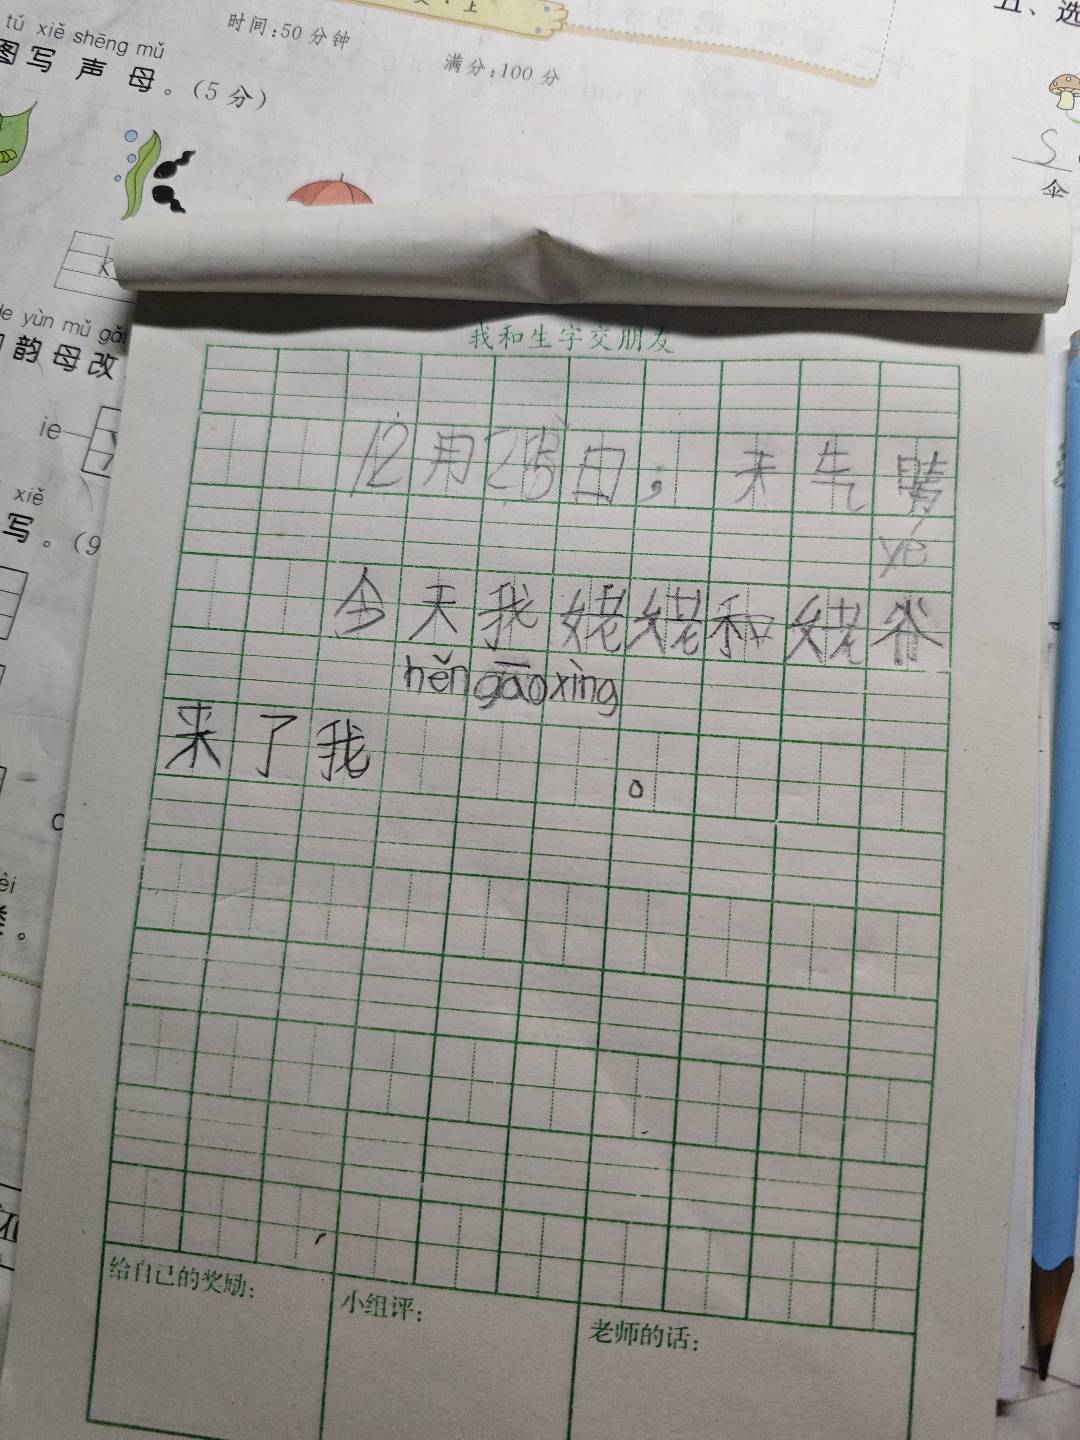 文·上
时间:50分钟
满分:100分
tú xiě shēng mǔ
图写声母。(5分)
五、选
S
伞
de yùn mǔ gǎi
韵母改
ie
xiě
写。(9
我和生字交朋友
12月25日,天气晴
yé
今天我姥姥和姥爷
hěn gāo xìng
来了我。
给自己的奖励:
小组评:
老师的话: